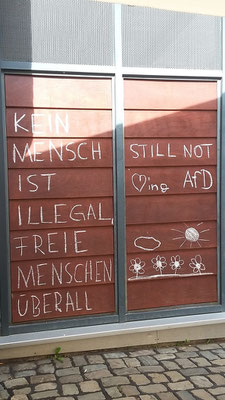 KEIN
MENSCH
IST
ILLEGAL,
FREIE
MENSCHEN
ÜBERALL
STILL NOT
♡ing AfD